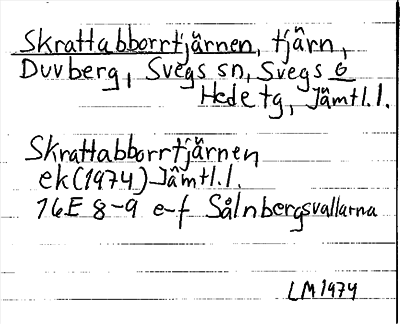 Skrattabborrtjärnen, tjärn,
Duvberg, Svegs sn, Svegs o
Hede tg, Jämtl. l.
Skrattabborrtjärnen
ek (1974) Jämtl. l.
16E 8-9 e-f Sålnbergsvallarna
LM 1974